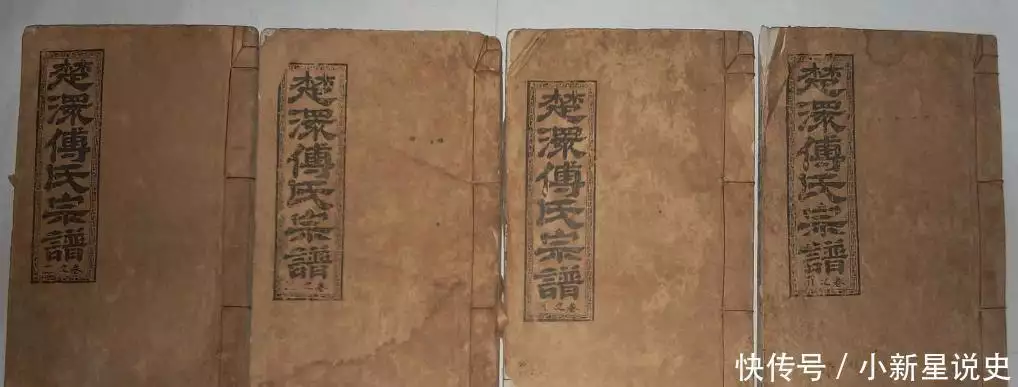 楚澴傅氏宗譜
卷之一
楚澴傅氏宗譜
卷
楚澴傅氏宗譜
卷之
楚澴傅氏宗譜
卷之
快传号／小新星说史